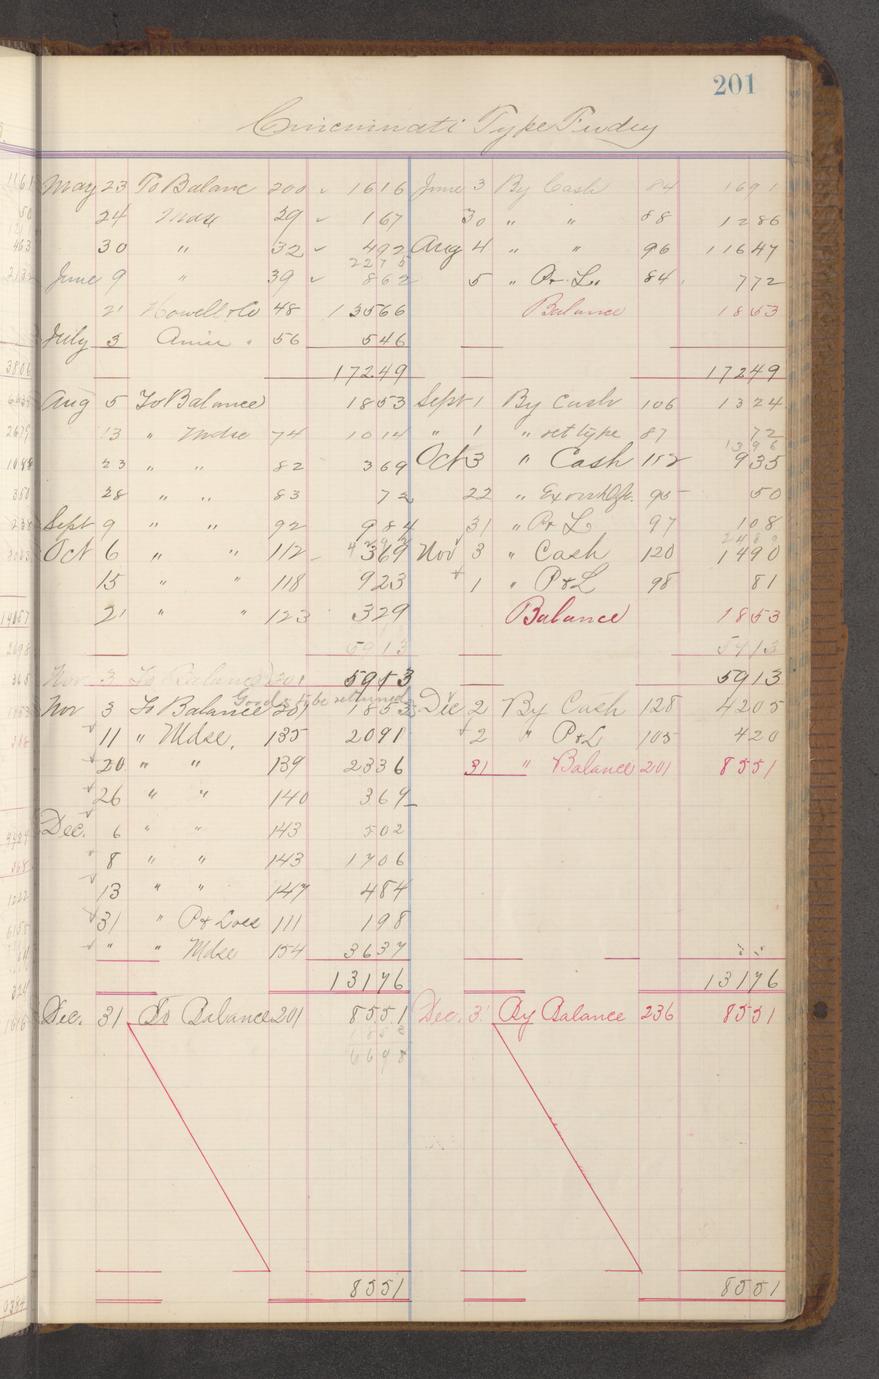 201
Cincinnati Type Fudry
May 23 To Balanc 200 1616 June 3 By Cash 84 1691
24 Mdse 29 167 30 " " 88 1286
30 " 32 492 Aug 4 " " 96 11647
2275
June 9 " 39 862 5 " P & L " 84 772
21 Howell & Co 48 13566 Balance 1853
July 3 56 546
17249 17249
Aug 5 To Balance 1853 Sept 1 By Cash 106 1324
13 " Mdse 74 1014 " 1 " set type 87 72
1396
23 " " 82 369 Oct 3 " Cash 112 935
28 " " 83 72 22 " 95 50
Sept 9 " " 92 984 31 " P & L 97 108
Oct 6 " " 112 369 Nov 3 " Cash 120 1490
15 " " 118 923 1 " P & L 98 81
21 " " 123 329 Balance 1853
5913 5913
Nov 3 To Balance 201 5913 5913
Goods to be returned
Nov 3 To Balance 201 1853 Dec 2 By Cash 128 4205
11 " Mdse. 135 2091 2 " P & L 105 420
20 " " 139 2336 31 " Balance 201 8551
26 " " 140 369
Dec. 6 " " 143 502
8 " " 143 1706
13 " " 147 484
31 " P & Loss 111 198
" " Mdse 154 3637
13176 13176
Dec. 31 To Balance 201 8551 Dec. 31 By Balance 236 8551
1853
6698
8551 8551